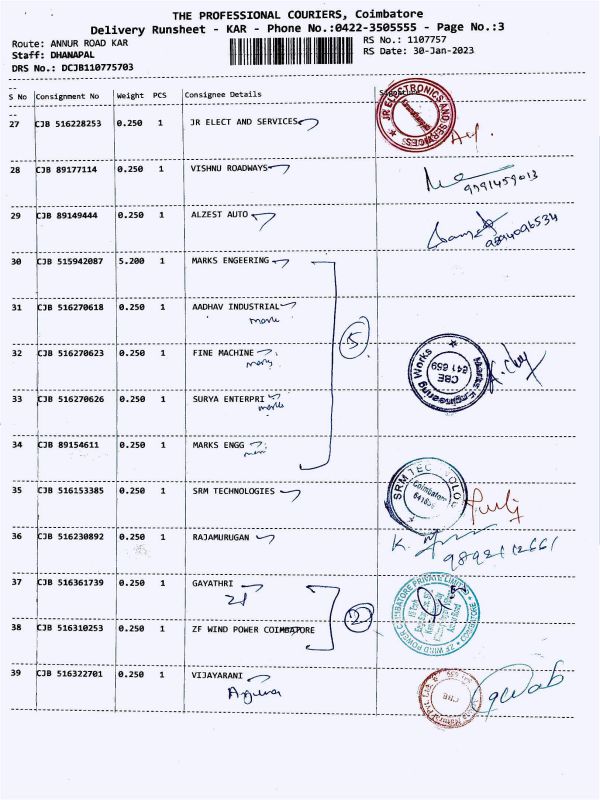 THE PROFESSIONAL COURIERS, Coimbatore
Delivery Runsheet - KAR - Phone No.:0422-3505555 - Page No.:3
Route: ANNUR ROAD KAR
RS No.: 1107757
Staff: DHANAPAL
RS Date: 30-Jan-2023
DRS No.: DCJB110775703
S No Consignment No Weight PCS Consignee Details
27 CJB 516228253 0.250 1 JR ELECT AND SERVICES
JR ELECTRONICS AND SERVICES
28 CJB 89177114 0.250 1 VISHNU ROADWAYS
9991459013
29 CJB 89149444 0.250 1 ALZEST AUTO
9894096534
30 CJB 515942087 5.200 1 MARKS ENGEERING
31 CJB 516270618 0.250 1 AADHAV INDUSTRIAL
marks
5
32 CJB 516270623 0.250 1 FINE MACHINE
marks
Marks Engineering Works
CBE
641 659
33 CJB 516270626 0.250 1 SURYA ENTERPRI
marks
34 CJB 89154611 0.250 1 MARKS ENGG
35 CJB 516153385 0.250 1 SRM TECHNOLOGIES
SRM TEC
Coimbatore
36 CJB 516230892 0.250 1 RAJAMURUGAN
K.
37 CJB 516361739 0.250 1 GAYATHRI
zf
2
38 CJB 516310253 0.250 1 ZF WIND POWER COIMBATORE
ZF WIND POWER COIMBATORE PRIVATE LIMITED
39 CJB 516322701 0.250 1 VIJAYARANI
CBE